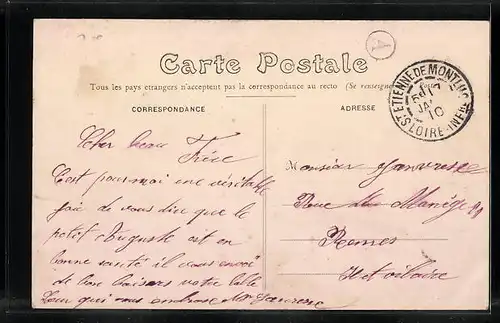 Carte Postale
Tous les pays étrangers n'acceptent pas la correspondance au recto (Se renseigner
CORRESPONDANCE
ADRESSE
ST ETIENNE DE MONTLUC
LOIRE-INFRE
10
Cher beau Frère
C'est pour moi une véritable
joie de vous dire que le
petit Auguste est en
bonne santé il vous envoi
de bon baisers votre belle
Sœur qui vous embrasse
Monsieur
Rue du Manège 29
Rennes
Ile et vilaine